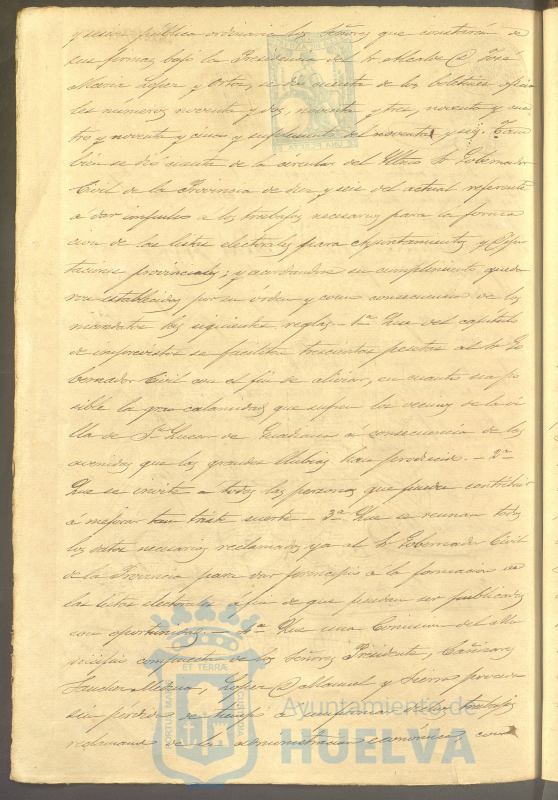 y sesion pública ordinaria los Señores que constarán de
sus firmas bajo la Presidencia del Sr Alcalde D José
Maria Lopez y Ortos, se dio cuenta de los boletines oficia
les números noventa y dos, noventa y tres, noventa y cua
tro y noventa y cinco y suplemento del noventa y seis. Tam
bien se dió cuenta de la circular del Iltmo Sr Gobernador
Civil de la Provincia de diez y seis del actual referente
a dar impulso a los trabajos necesarios para la forma
cion de las listas electorales para Ayuntamientos y Dipu
taciones provinciales; y acordandose su cumplimiento queda
ron establecidas por su órden y como consecuencia de los
mandatos las siguientes reglas. - 1ª Que del capítulo
de imprevistos se faciliten trescientas pesetas al Sr Go
bernador Civil con el fin de aliviar, en cuanto sea po
sible la gran calamidad que sufren los vecinos de la vi
lla de Sn Lucar de Guadiana a consecuencia de las
avenidas que las grandes lluvias han producido. - 2ª
Que se invite á todas las personas que puedan contribuir
a mejorar tan triste suerte - 3ª Que se reunan todos
los datos necesarios reclamados ya al Sr Gobernador Civil
de la Provincia para dar principio á la formacion de
las listas electorales á fin de que puedan ser publicadas
con oportunidad. - 4ª Que una Comision del Mu
nicipio compuesta de los Señores Presidente, Cañizares
Sanchez Mizco, Lopez D Manuel y Sierra proceda
sin pérdida de tiempo a los trabajos
reclamados de la administracion económica, como
ET TERRAE
Ayuntamiento de
HUELVA